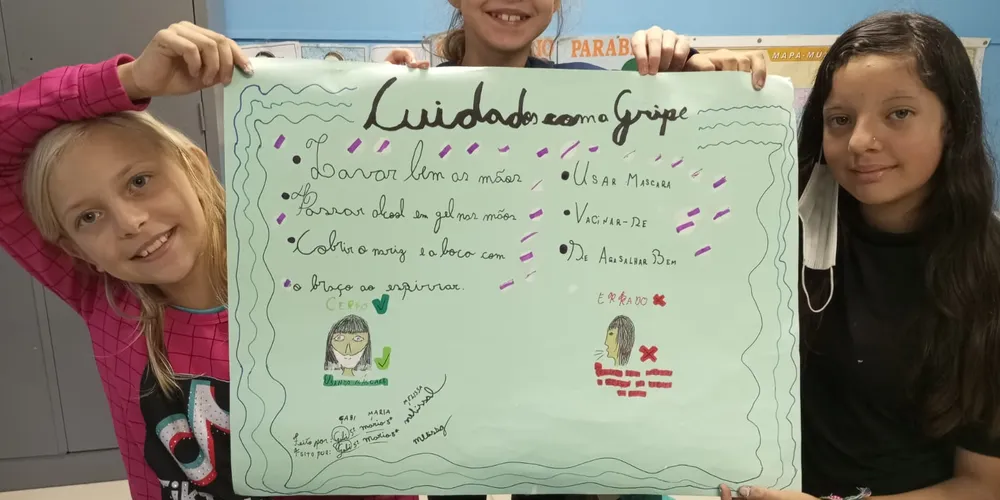 PARAB
MAPA-MU
Cuidados com a Gripe
• Lavar bem as mãos
• Passar alcool em gel nas mãos
• Cobrir o nariz e a boca com
• o braço ao espirrar.
• USAR MASCARA
• VACINAR-SE
• DE AGASALHAR BEM
CERTO
ERRADO
GABI MARIA MELISSA
Feito por: Gabi maria melissa